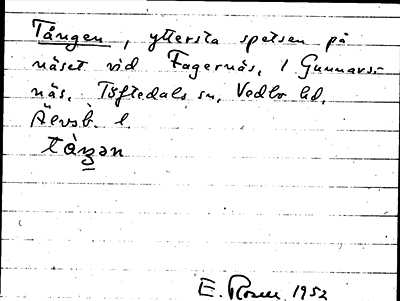 Tången, yttersta spetsen på
näset vid Fagernäs, 1 Gunnars-
näs, Töftedals sn, Vedbo hd,
Älvsb. l.
tàŋən
E. Rosell 1952